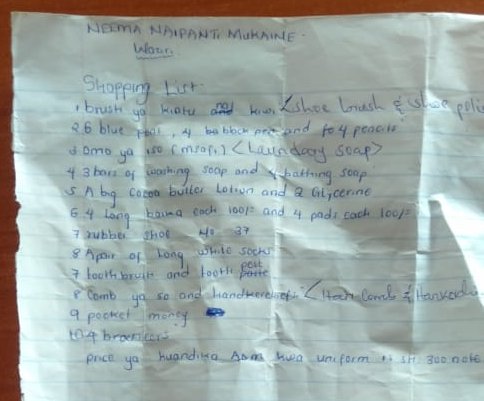 NEEMA NAIPANTI MUKAINE.
Shopping List.
1 brush ya kiatu and kiwi <shoe brush & shoe polis
2 6 blue pens, 4 and 4 pencils
3 Omo ya 150 (msafi) <Laundary soap>
4 3 bars of washing soap and 4 bathing soap
5 A big cocoa butter Lotion and 2 Glycerine
6 4 Long each 100/= and 4 pads each 100/=
7 rubber shoe No 37
8 A pair of Long white socks
7 toothbrush and tooth past
8 Comb ya so and Handkerchief <
9 pocket money
10 4
price ya kuandika kwa uniform sh 300 note